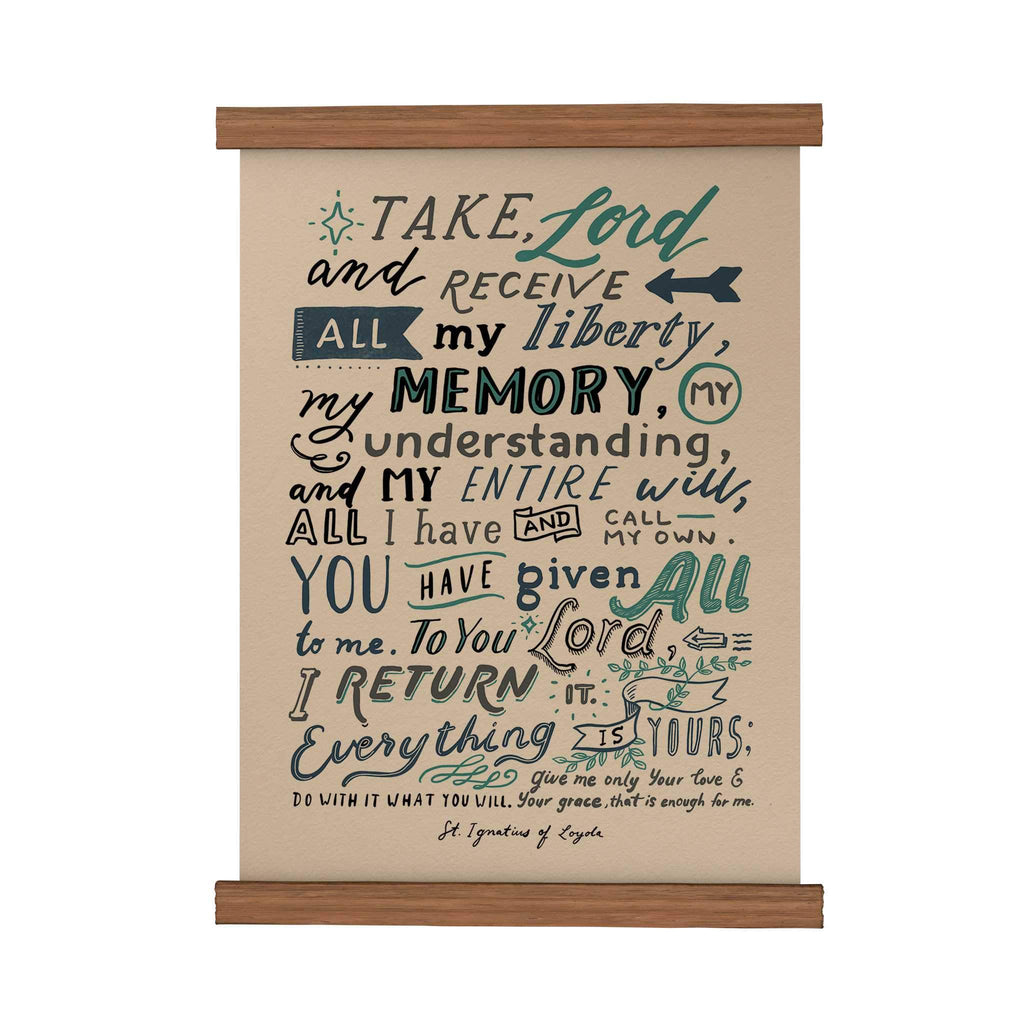 TAKE, Lord
and RECEIVE
ALL my liberty,
my MEMORY, MY
understanding,
and MY ENTIRE will,
ALL I have AND CALL
MY OWN.
YOU HAVE given All
to me. To You Lord,
I RETURN IT.
Everything IS YOURS;
DO WITH IT WHAT YOU WILL.
Give me only Your love &
Your grace, that is enough for me.
St. Ignatius of Loyola